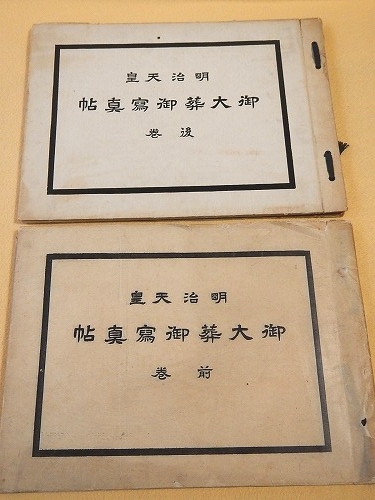 明治天皇
御大葬御寫眞帖
後巻
明治天皇
御大葬御寫眞帖
前巻